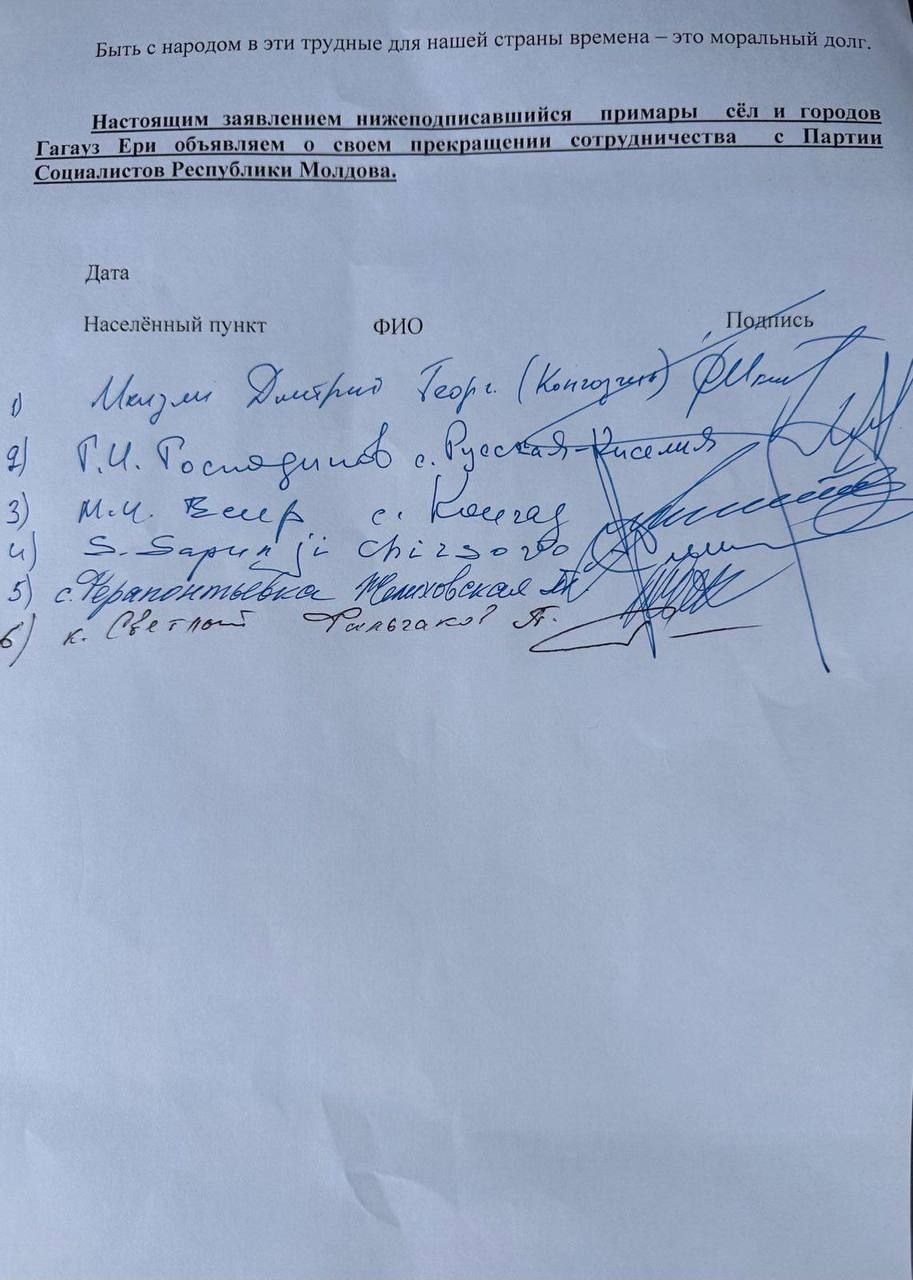 Быть с народом в эти трудные для нашей страны времена – это моральный долг.
Настоящим заявлением нижеподписавшийся примары сёл и городов
Гагауз Ери объявляем о своем прекращении сотрудничества с Партии
Социалистов Республики Молдова.
Дата
Населённый пункт ФИО Подпись
1) Дмитрий Георг. (Конгазчик)
2) Г.И. Господинов с. Русская-Киселия
3) М.И. с. Конгаз
4) S. Sapunji Chirsovo
5) с. Ферапонтьевка Желиховская
6) к. Светлый Фальчаков П.